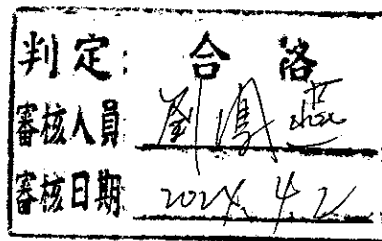 判定: 合格
審核人員 劉鳳燕
審核日期 2024.4.2